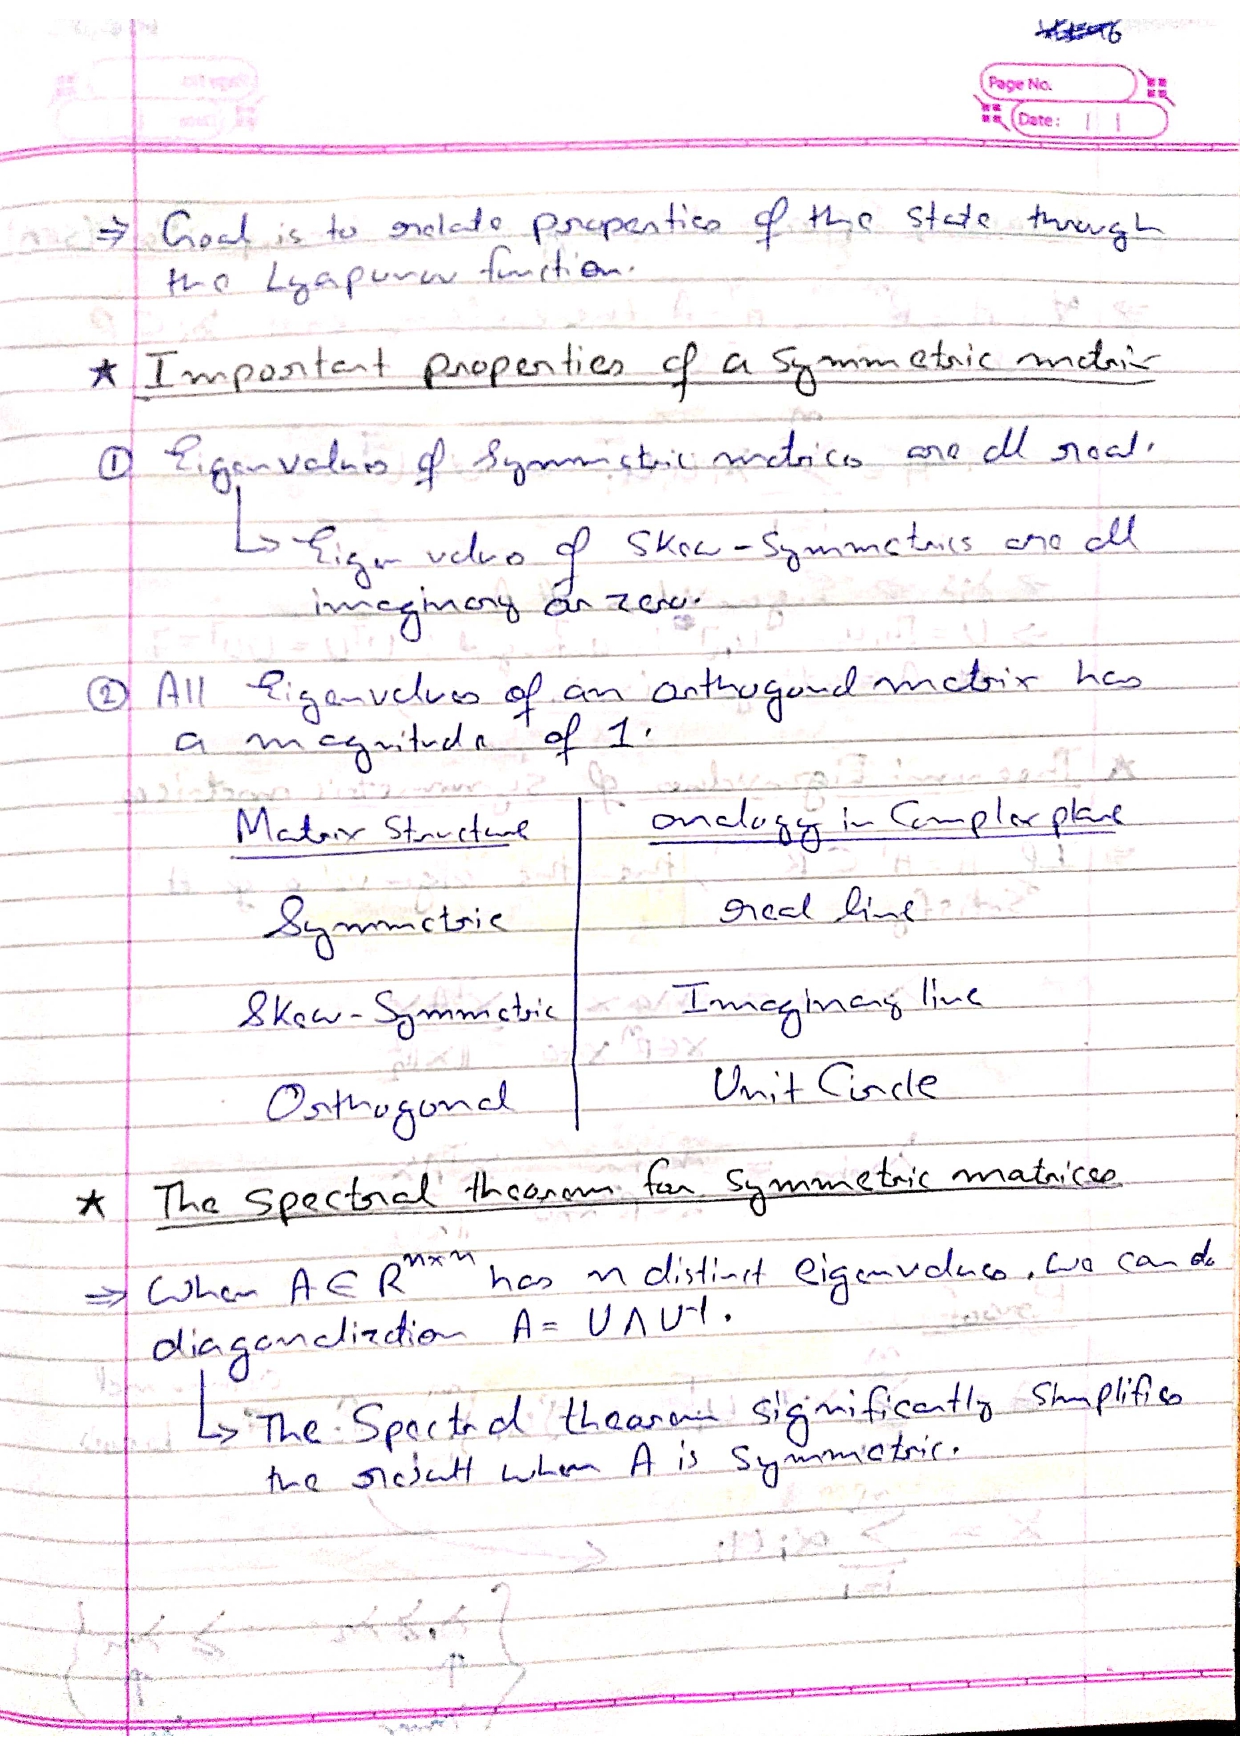 Page No.
Date:
⇒ Goal is to relate properties of the state through
the Lyapunov function.
★ Important properties of a symmetric matrix
① Eigenvalues of Symmetric matrices are all real.
↳ Eigen values of Skew-Symmetrics are all
imaginary or zero.
② All Eigenvalues of an orthogonal matrix has
a magnitude of 1.
Matrix Structure | analogy in Complex plane
Symmetric | real line
Skew-Symmetric | Imaginary line
Orthogonal | Unit Circle
★ The spectral theorem for symmetric matrices
⇒ When A ∈ R^{n×n} has n distinct eigenvalues, we can do
diagonalization A = UΛU⁻¹.
↳ The Spectral theorem significantly simplifies
the result when A is symmetric.